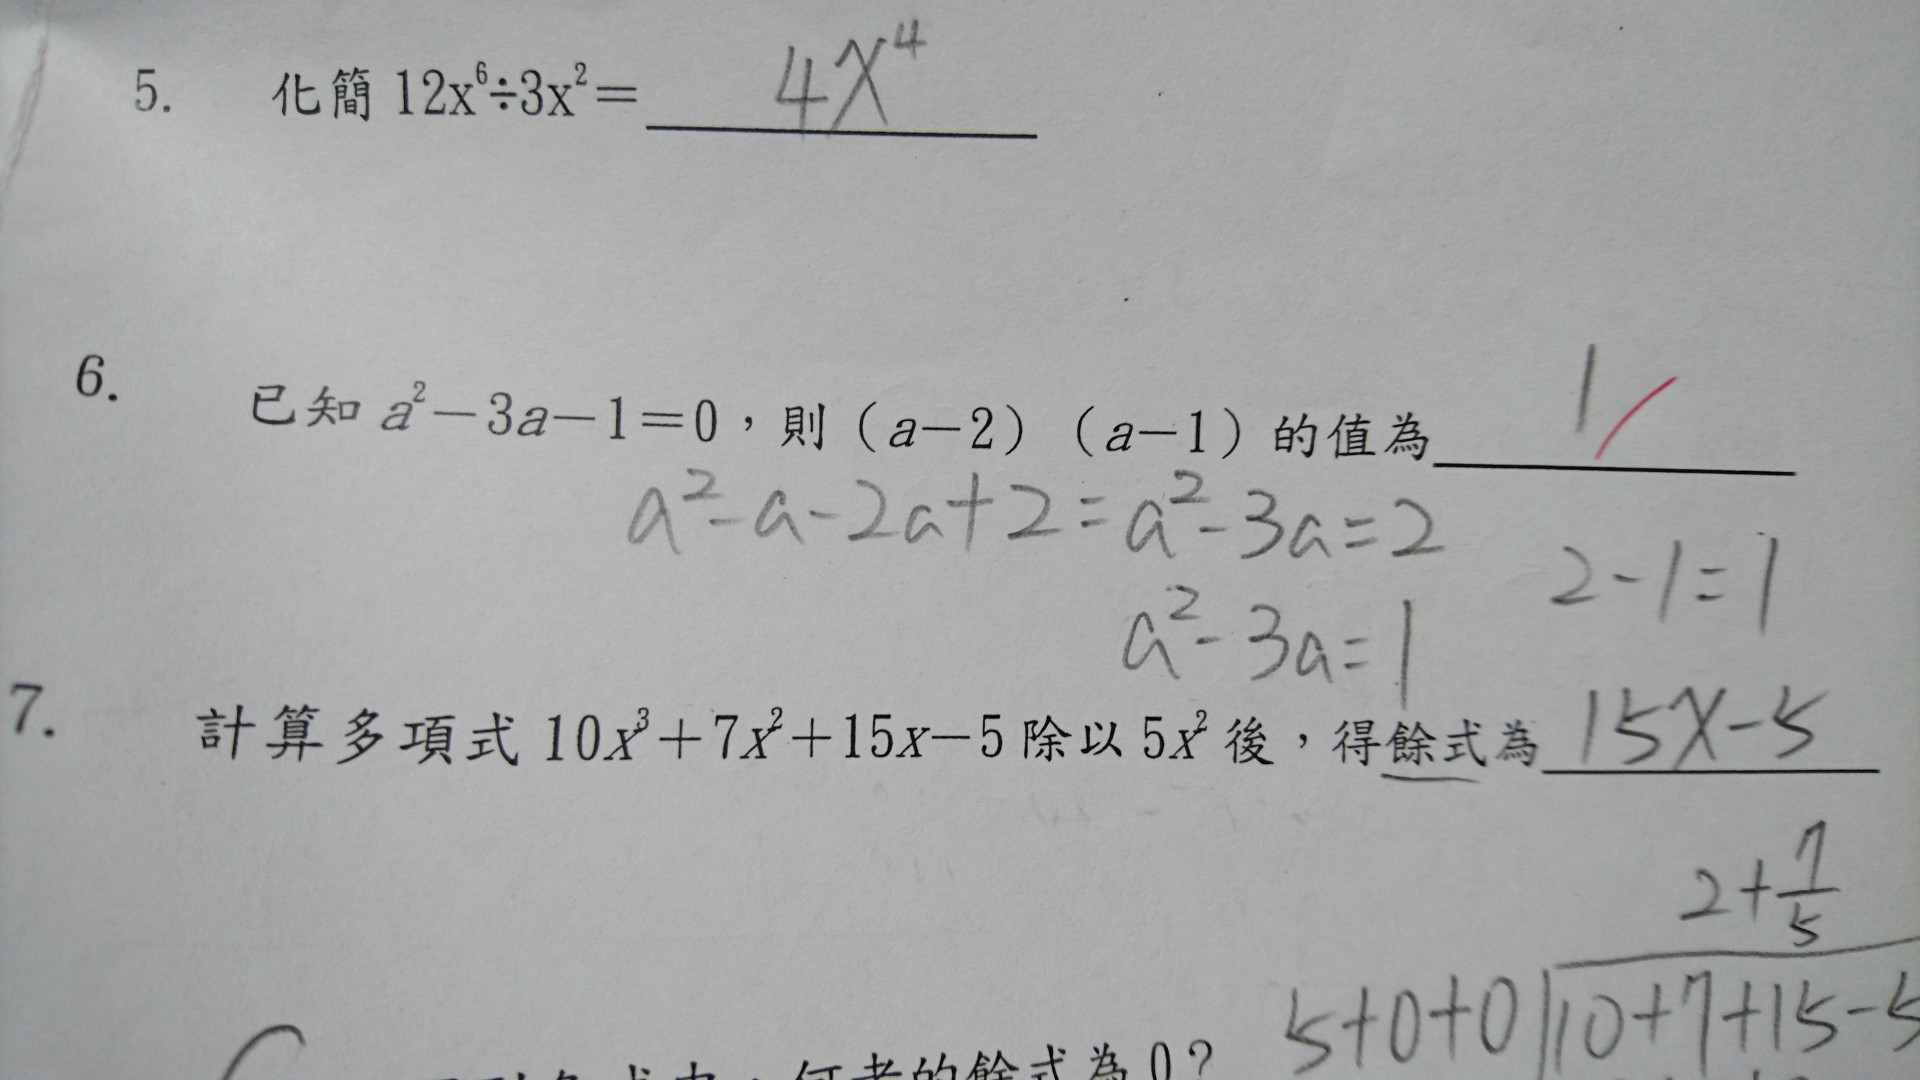 5. 化簡 12x⁶÷3x²= 4X⁴
6. 已知 a²－3a－1＝0，則（a－2）（a－1）的值為 1
a²-a-2a+2=a²-3a=2
2-1=1
a²-3a=1
7. 計算多項式 10x³＋7x²＋15x－5 除以 5x² 後，得餘式為 15X-5
2+7/5
5+0+0)10+7+15-5
何者的餘式為 0？